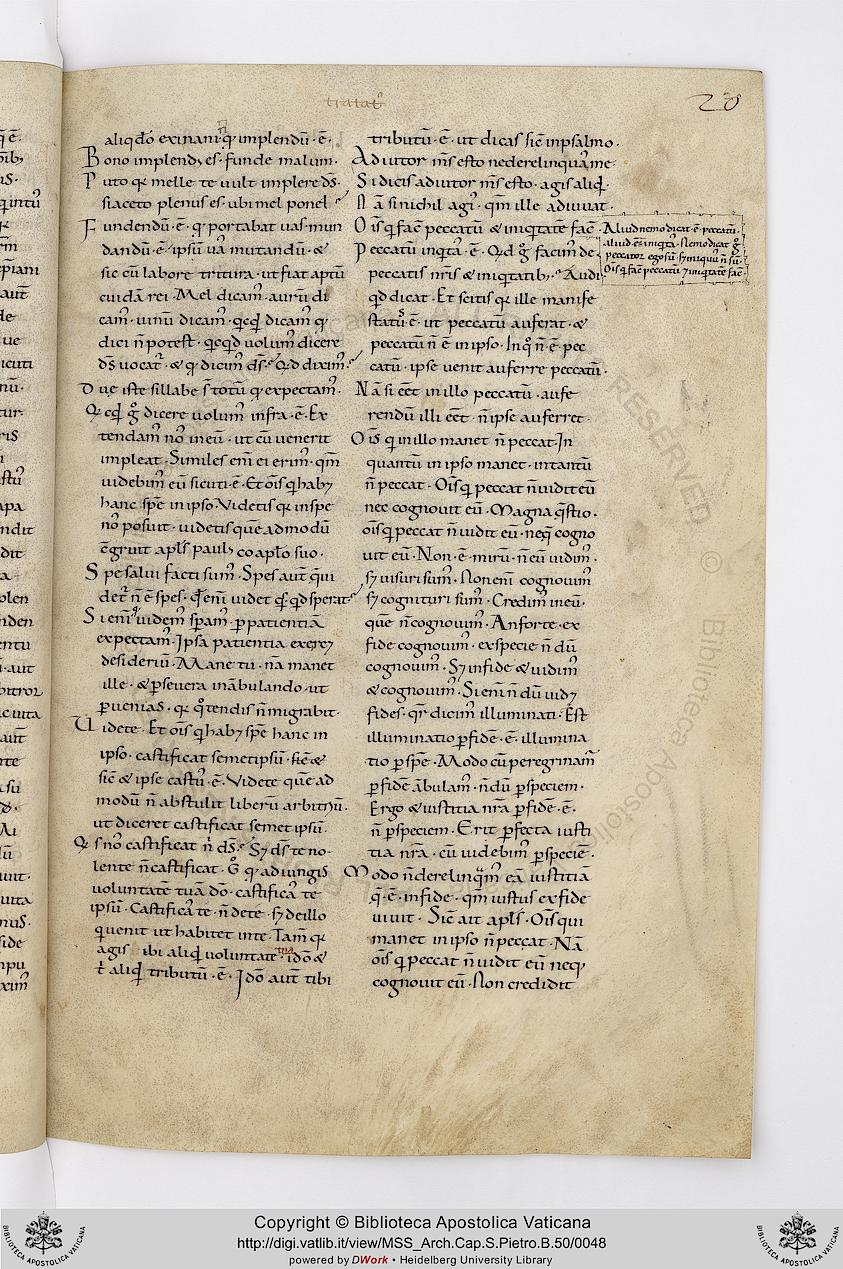 tratat᷒
20
aliqd̄o exinani q̣ implendū · ē ·
Bono implendꝫ es · funde malum ·
Puto qꝛ melle te uult implere dS̄ ·
si aceto plenus es · ubi mel ponel
Fundendū · ē · qđ portabat uas · mun
dandū · ē · ipsū uā mutandū · &
sic cū labore tritura · ut fiat aptū
cuidā rei · Mel dicam᷒ · aurū di
cam᷒ · uinū dicam᷒ · qcqđ dicam᷒ qđ
dici n̄ potest · qcqd uolum᷒ dicere
dS̄ uocat᷒ · & qđ dicim᷒ dS̄ · Qd dixim᷒ ·
Due iste sillabe s̄ totū qđ expectam᷒ ·
Qcqđ g̊ dicere uolum᷒ infra · ē · Ex
tendam᷒ no᷒ in eū · ut cū uenerit
impleat · Similes eni᷒ ei erim᷒ · qm̄
uidebim᷒ eū sicuti · ē · Et ois̄ q habꝫ
hanc spē in ipso · Videtis qꝛ in spe
no᷒ posuit · uidetis quē admodū
c̄gruit apl̄s paulꝰ co apl̄o suo ·
Spe salui facti sum᷒ · Spes aut̄ q̄ ui
det᷒ n̄ ē spes · Qđ eni᷒ uidet q᷒s qđ sperat
Si eni᷒ qđ n̄ uidem᷒ spam᷒ · p̱ patientiā
expectam᷒ · Ipsa patientia exercꝫ
desideriū · Mane tu · nā manet
ille · & p̱seuera in ābulando · ut
p̱uenias · qꝛ q̊ tendis n̄ migrabit ·
Videte · Et ois̄ q habꝫ spē hanc in
ipso · castificat semetipsū · sic &
sic̄ & ipse castū · ē · Videte quē ad
modū n̄ abstulit liberū arbitriū ·
ut diceret castificat semet ipsū ·
Q᷒s no᷒ castificat n᷒ dS̄ · Sꝫ dS̄ te no-
lente n̄ castificat · G̊ qđ adiungis
uoluntatē tuā dō · castificas te
ipsū · Castificas te · n̄ de te · sꝫ de illo
qui uenit ut habitet in te · Tam̄ qꝛ
agis ibi aliqđ uoluntate · idō &
t᷒ aliqđ tributū · ē · Idō aut̄ tibi
tributū · ē · ut dicas sic̄ in psalmo ·
Adiutor m̄s esto ne derelinquas me ·
Si dicis adiutor m̄s esto · agis aliqđ ·
Nā si nichil agis · qm̄o ille adiuuat ·
Ois̄ q fac̄ peccatū & iniqtatē fac̄ ·
Peccatū iniqtas · ē · Qd g̊ facim᷒ de
peccatis nr̄is & iniqtatibꝫ · Audi
qd dicat · Et scitis qꝛ ille manife
status · ē · ut peccatū auferat · &
peccatū n̄ ē in ipso · In q̊ n̄ · ē · pec
catū · ipse uenit auferre peccatū ·
Nā si eēt in illo peccatū · aufe
rendū illi eēt · n̄ ipse auferret ·
Ois̄ q in illo manet n̄ peccat · In
quantū in ipso manet · in tantū
n̄ peccat · Ois̄ q peccat n̄ uidit eū
nec cognouit eū · Magna q᷒stio ·
ois̄ q peccat n̄ uidit eū · neqꝫ cogno
uit eū · Non · ē · mirū · n̄ eū uidim᷒ ·
sꝫ uisuri sum᷒ · Non eni᷒ cognouim᷒
sꝫ cognituri sum᷒ · Credim᷒ in eū ·
quē n̄ cognouim᷒ · An forte · ex
fide cognouim᷒ · ex specie n̄ dū
cognouim᷒ · Sꝫ in fide & uidim᷒
& cognouim᷒ · Si eni᷒ n̄ dū uidꝫ
fides · qr̄ dicim᷒ illuminati · Est
illuminatio p̱ fidē · ē · illumina
tio p̱ spē · Modo cū peregrinam᷒
p̱ fidē ābulam᷒ · n̄dū p̱ speciem ·
Ergo & iustitia nr̄a p̱ fidē · ē ·
n̄ p̱ speciem · Erit p̱fecta iusti
tia nr̄a · cū uidebim᷒ p̱ speciē ·
Modo n̄ derelinq̄m᷒ eā iustitiā
q̄ · ē · in fide · qm̄ iustus ex fide
uiuit · Sic̄ ait apl̄s · Ois̄ qui
manet in ipso n̄ peccat · Nā
ois̄ q peccat n̄ uidit eū neqꝫ
cognouit eū · Non credidit
Aliud nemo dicat · ē · peccatū ·
aliud · ē · iniqtas · Nemo dicat g̊
peccator ego sū · sꝫ iniquus n̄ sū ·
Ois̄ q fac̄ peccatū ⁊ iniqtatē fac̄ ·
Copyright © Biblioteca Apostolica Vaticana
http://digi.vatlib.it/view/MSS_Arch.Cap.S.Pietro.B.50/0048
powered by DWork • Heidelberg University Library